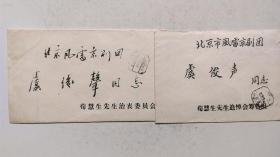 北京风雷京剧团
虞俊声同志
荀慧生先生治丧委员会
北京市風雷京剧团
虞俊声 同志
荀慧生先生追悼会筹备